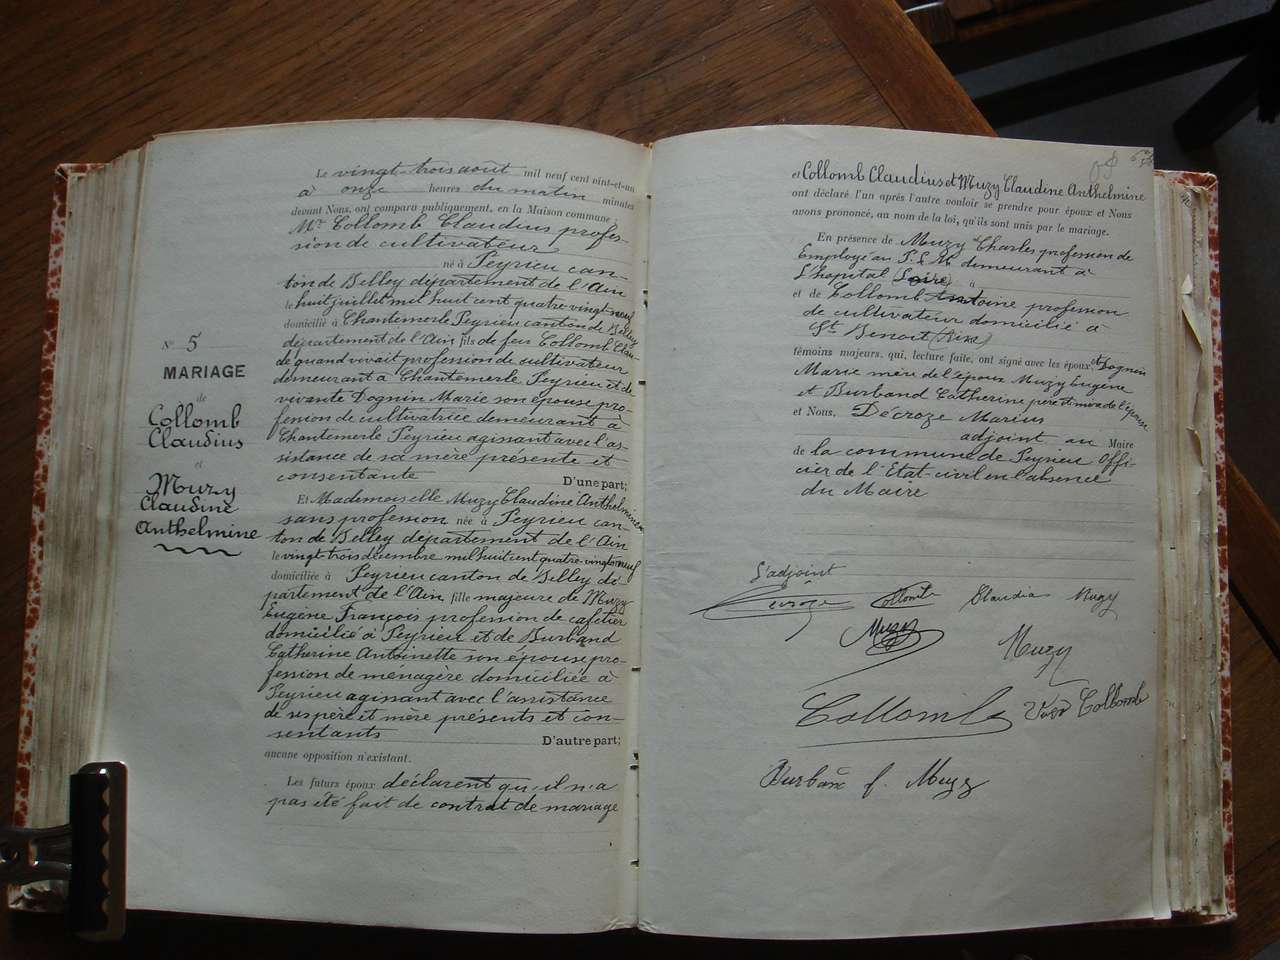 N° 5
MARIAGE
de
Collomb
Claudius
et
Muzy
Claudine
Anthelmine
Le vingt-trois août mil neuf cent vint-et-un
à onze heures du matin minutes
devant Nous, ont comparu publiquement, en la Maison commune :
Mr Collomb Claudius profes-
sion de cultivateur
né à Peyrieu can-
ton de Belley département de l'Ain
le huit juillet mil huit cent quatre-vingt-neuf
domicilié à Chantemerle Peyrieu canton de Belley
département de l'Ain fils de feu Collomb Clau-
de quand vivait profession de cultivateur
demeurant à Chantemerle Peyrieu et de
vivante Dognin Marie son épouse pro-
fession de cultivatrice demeurant à
Chantemerle Peyrieu agissant avec l'as-
sistance de sa mère présente et
consentante D'une part;
Et Mademoiselle Muzy Claudine Anthelmine
sans profession née à Peyrieu can-
ton de Belley département de l'Ain
le vingt trois décembre mil huit cent quatre-vingt-neuf
domiciliée à Peyrieu canton de Belley dé-
partement de l'Ain fille majeure de Muzy
Eugène François profession de cafetier
domicilié à Peyrieu et de Burband
Catherine Antoinette son épouse pro-
fession de ménagère domiciliée à
Peyrieu agissant avec l'assistance
de ses père et mère présents et con-
sentants D'autre part;
aucune opposition n'existant.
Les futurs époux déclarent qu'il n'a
pas été fait de contrat de mariage
et Collomb Claudius et Muzy Claudine Anthelmine
ont déclaré l'un après l'autre vouloir se prendre pour époux et Nous
avons prononcé, au nom de la loi, qu'ils sont unis par le mariage.
En présence de Muzy Charles profession de
Employé au P. L. M. demeurant à
L'hopital Loire) à
et de Collomb Antoine profession
de cultivateur domicilié à
St Benoit
témoins majeurs, qui, lecture faite, ont signé avec les époux, et Dognin
Marie mère de l'époux Muzy Eugène
et Burband Catherine père et mère de l'épouse
et Nous, Décroze Marius
adjoint au Maire
de la commune de Peyrieu Offi-
cier de l'Etat-civil en l'absence
du Maire
L'adjoint
Collomb Claudia Muzy
Muzy Muzy
Collomb Collomb
f. Muzy